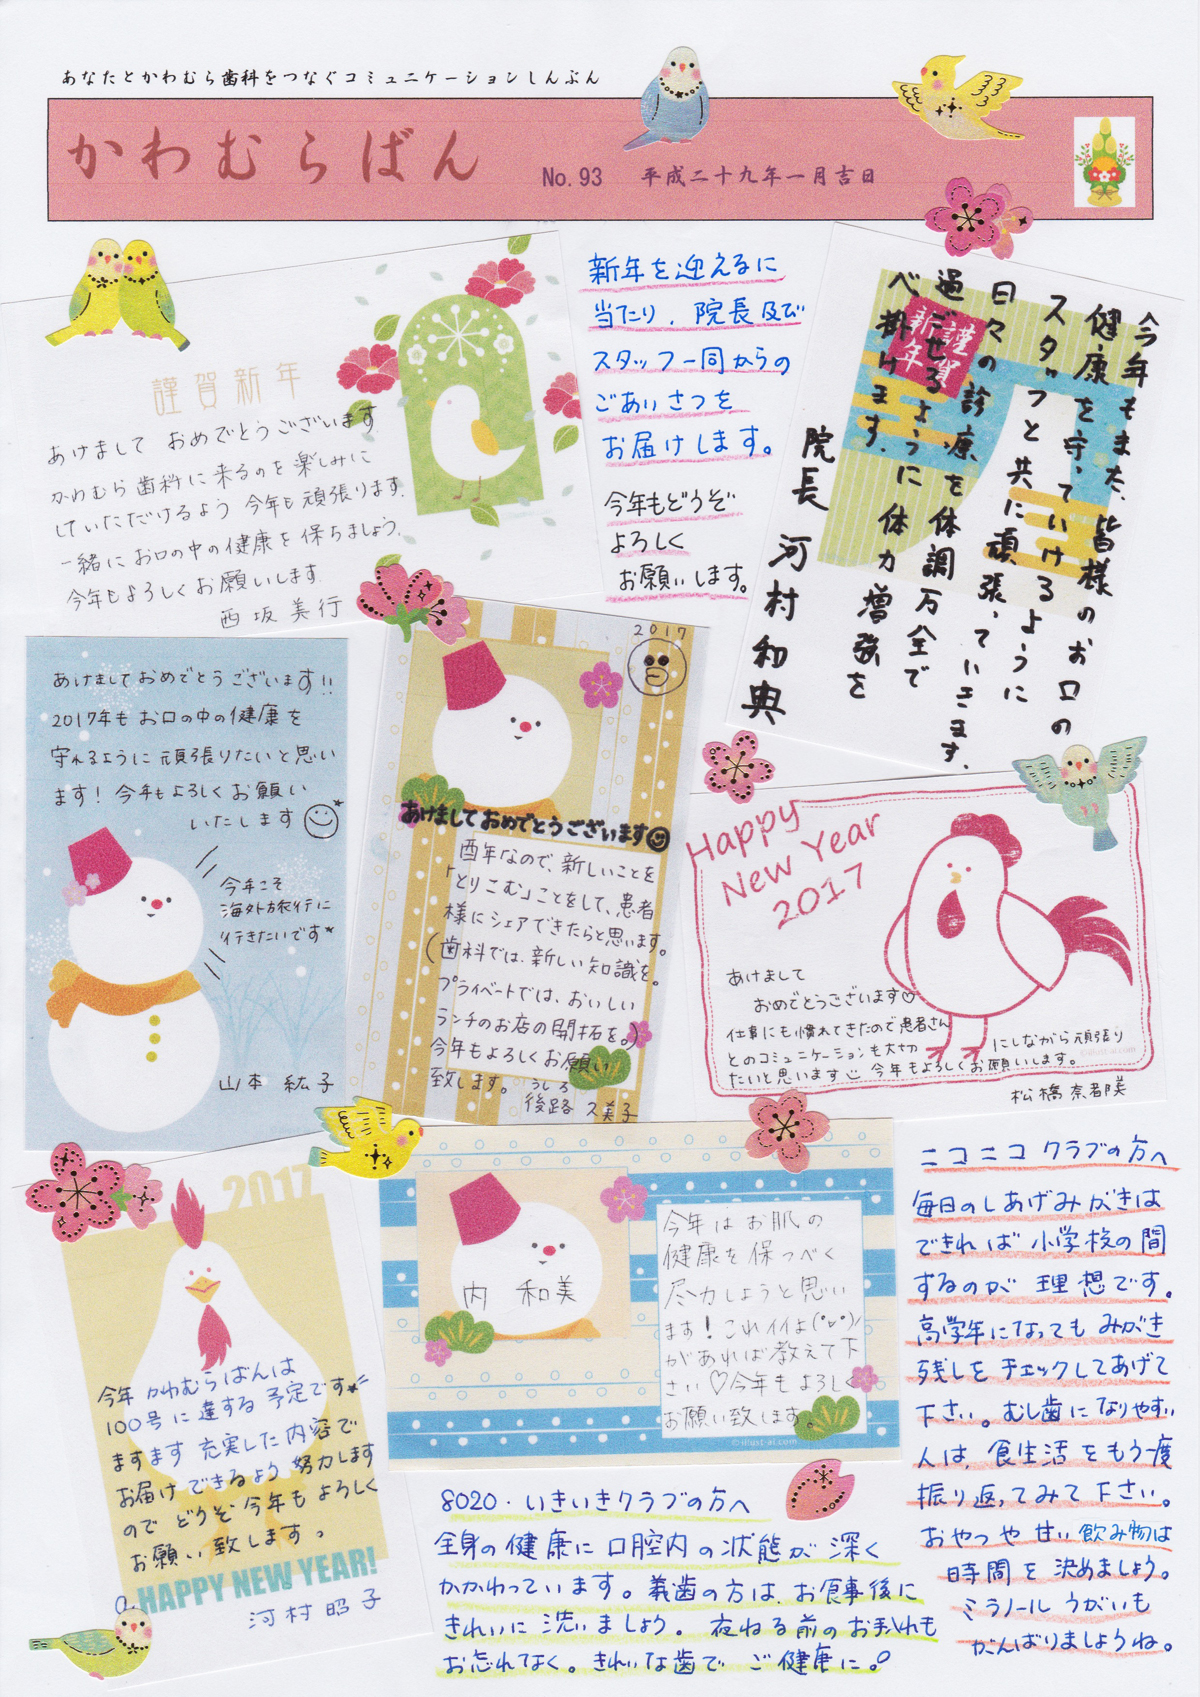 あなたとかわむら歯科をつなぐコミュニケーションしんぶん
かわむらばん
No.93 平成二十九年一月吉日
謹賀新年
あけまして おめでとうございます
かわむら歯科に来るのを楽しみに
していただけるよう 今年も頑張ります.
一緒に お口の中の健康を 保ちましょう.
今年もよろしくお願いします.
西坂美行
新年を迎えるに
当たり、院長及び
スタッフ一同からの
ごあいさつを
お届けします。
今年もどうぞ
よろしく
お願いします。
謹賀
新年
今年もまた、皆様のお口の
健康を守っていけるように
スタッフと共に頑張っていきます.
日々の診療を体調万全で
過ごせるように体力増強を
べ掛けます.
院長 河村和典
あけましておめでとうございます!!
2017年も お口の中の健康を
守れるように 頑張りたいと思い
ます! 今年もよろしくお願い
いたします
今年こそ
海外旅行に
行きたいです
山本 紘子
2017
あけましておめでとうございます
酉年なので、新しいことを
「とりこむ」ことをして、患者
様にシェアできたらと思います。
(歯科では、新しい知識を。
プライベートでは、おいしい
ランチのお店の開拓を。)
今年もよろしくお願い
致します。
うしろ
後路 久美子
Happy
New Year
2017
あけまして
おめでとうございます♡
仕事にも慣れてきたので患者さん
とのコミュニケーションも大切にしながら頑張り
たいと思います 今年もよろしくお願いします。
©illust-ai.com
松橋 奈都美
2017
今年 かわむらばんは
100号に達する予定です
ますます 充実した内容で
お届けできるよう 努力します
ので どうぞ今年も よろしく
お願い致します。
HAPPY NEW YEAR!
河村昭子
内 和美
今年はお肌の
健康を保つべく
尽力しようと思い
ます! これイイよ(°∨°)ﾉ
があれば教えて下
さい♡今年もよろしく
お願い致します。
©illust-ai.com
ニコニコ クラブの方へ
毎日のしあげみがきは
できれば 小学校の間
するのが 理想です。
高学年になっても みがき
残しを チェックしてあげて
下さい。むし歯になりやすい
人は、食生活をもう一度
振り返ってみて下さい。
おやつや甘い飲み物は
時間を 決めましょう。
ミラノール うがいも
がんばりましょうね。
8020・いきいきクラブの方へ
全身の健康に口腔内の状態が深く
かかわっています。義歯の方は、お食事後に
きれいに洗いましょう。夜ねる前のお手入れも
お忘れなく。きれいな歯で ご健康に。